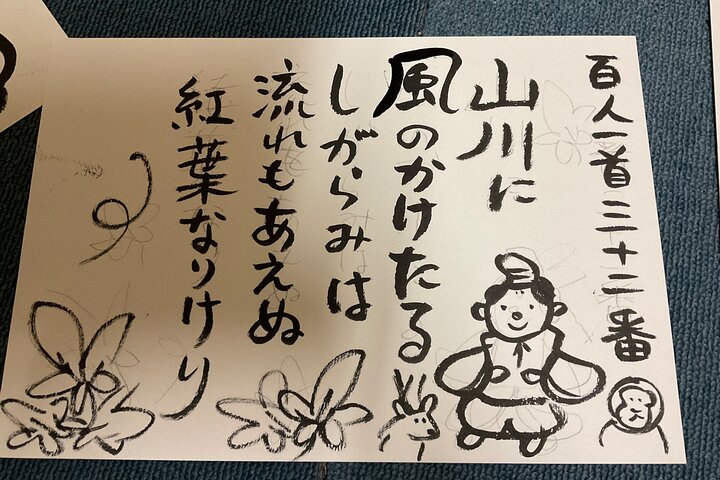 百人一首三十二番
山川に
風のかけたる
しがらみは
流れもあえぬ
紅葉なりけり